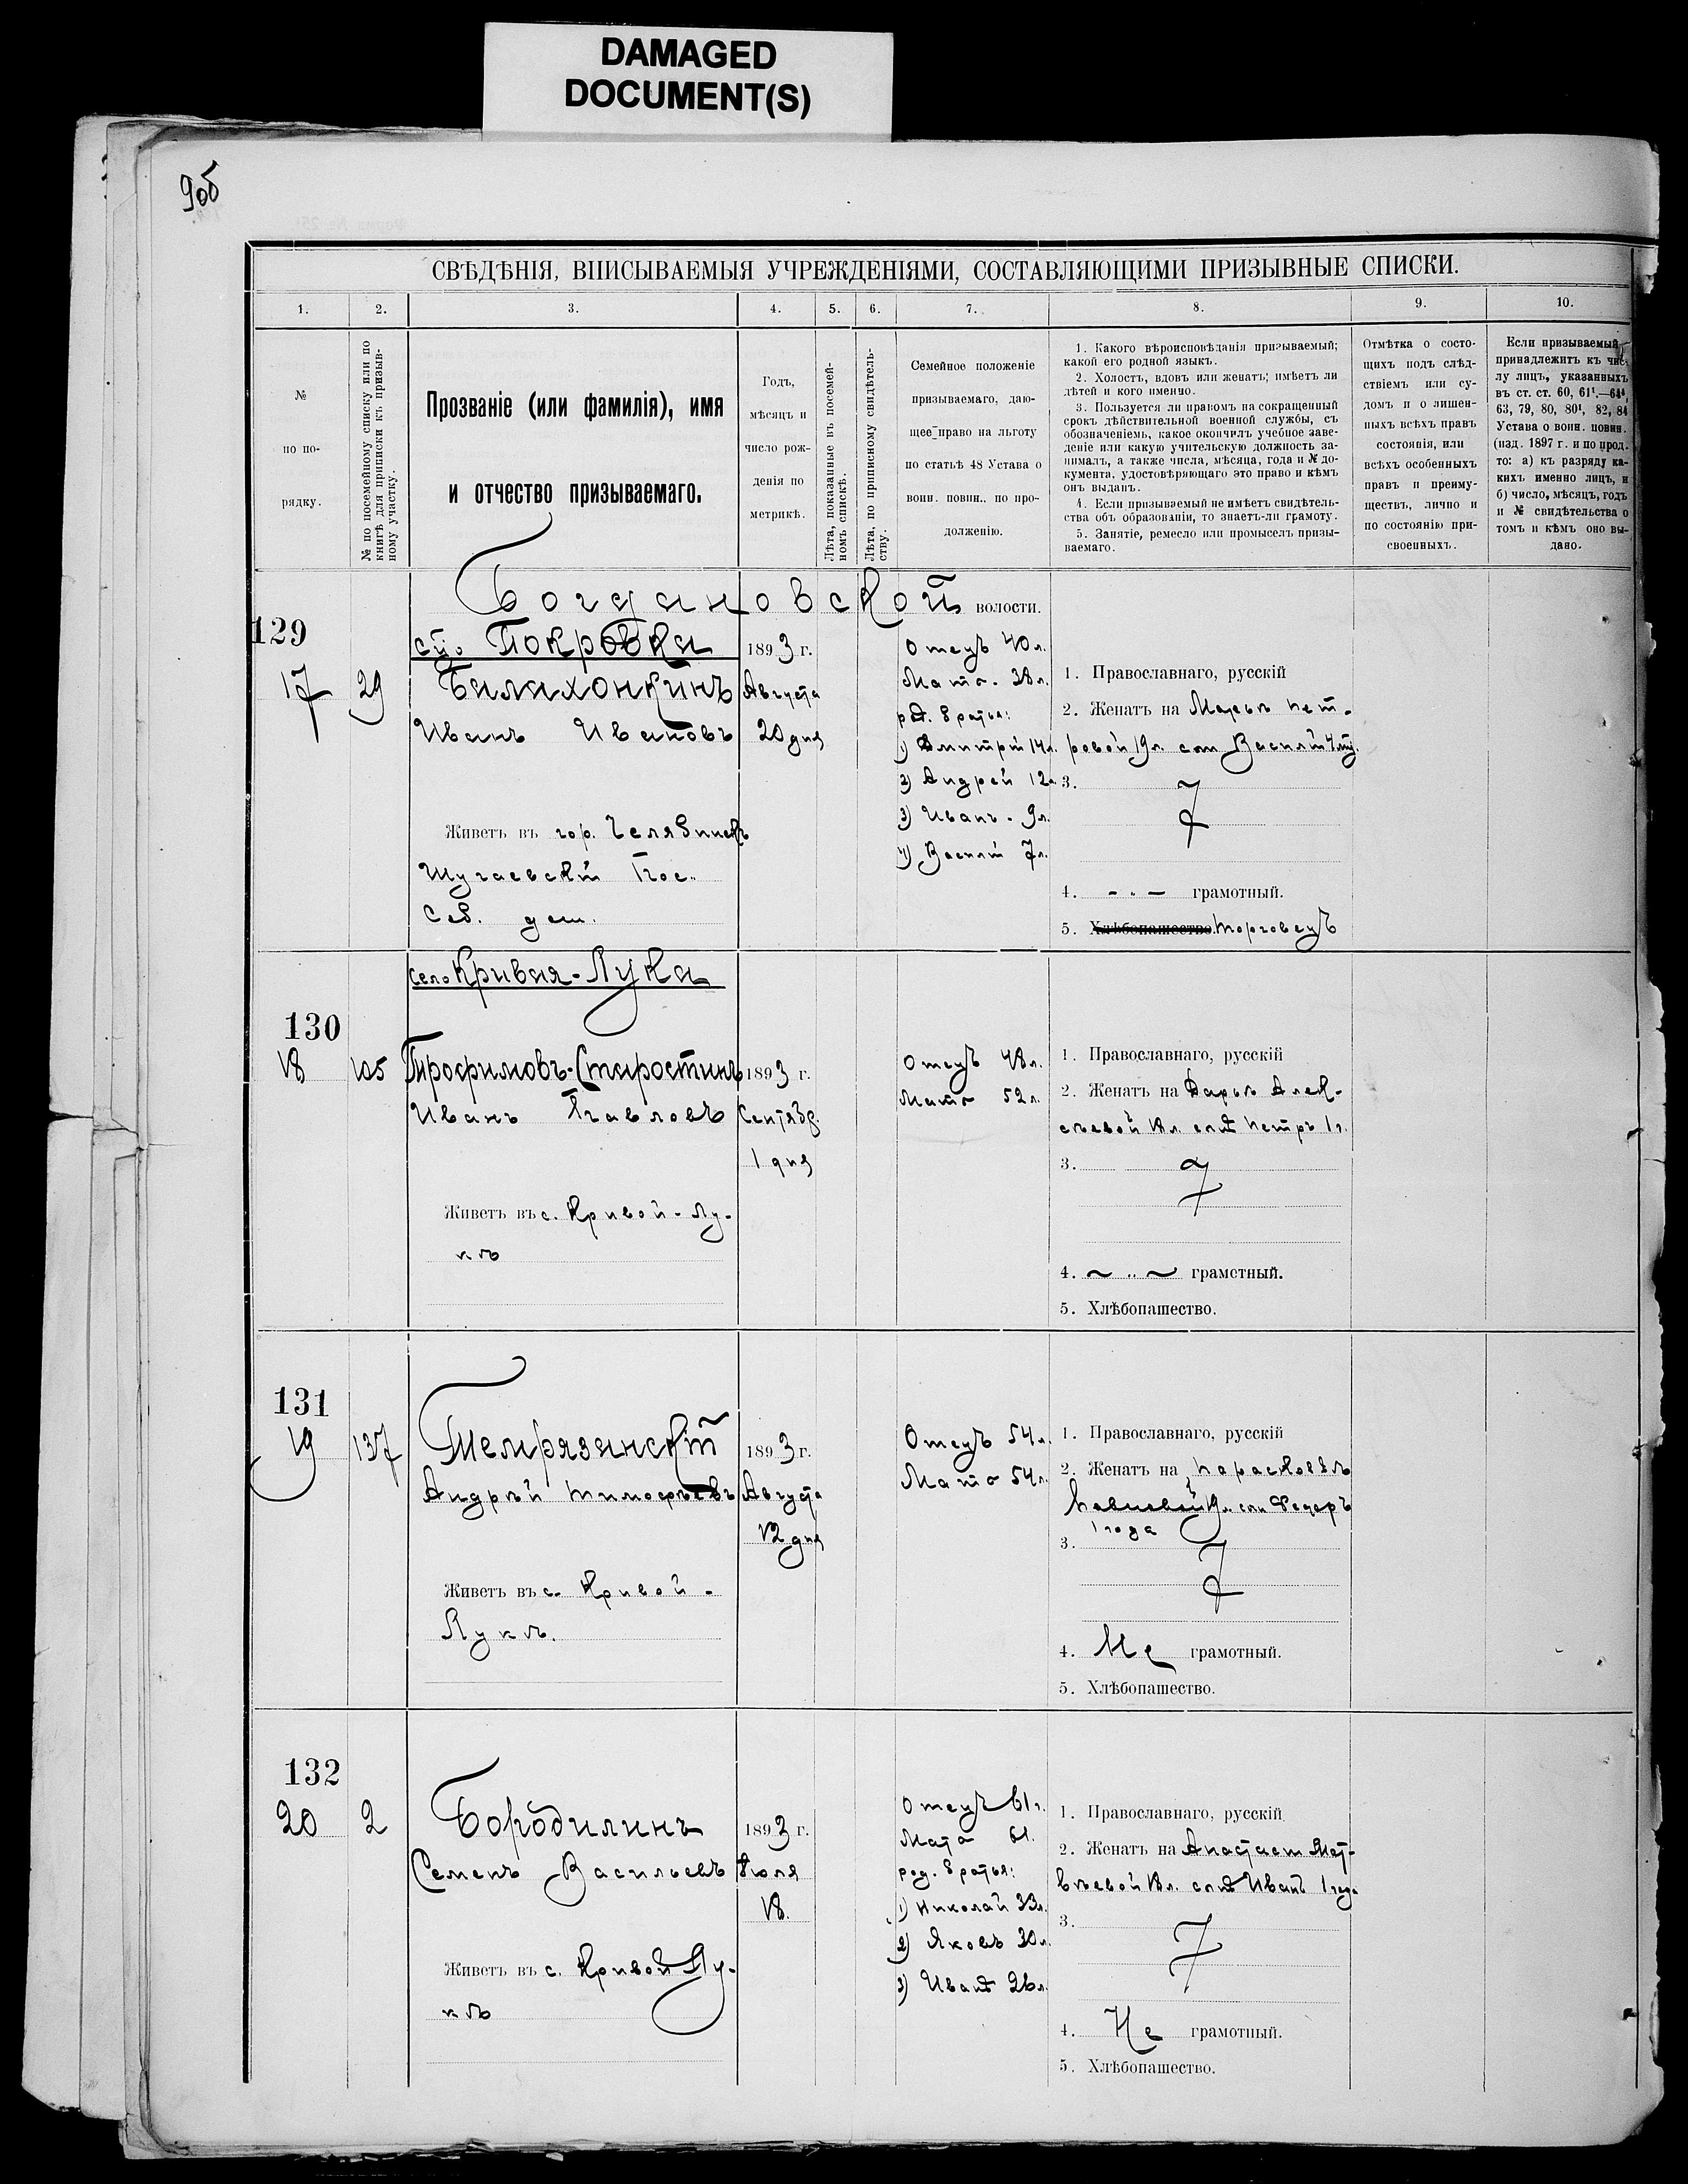 DAMAGED
DOCUMENT(S)
9об
СВѢДѢНІЯ, ВПИСЫВАЕМЫЯ УЧРЕЖДЕНІЯМИ, СОСТАВЛЯЮЩИМИ ПРИЗЫВНЫЕ СПИСКИ.
1. 2. 3. 4. 5. 6. 7. 8. 9. 10.
№
по по-
рядку.
№ по посемейному списку или по
книгѣ для приписки къ призыв-
ному участку.
Прозваніе (или фамилія), имя
и отчество призываемаго.
Годъ,
мѣсяцъ и
число рож-
денія по
метрикѣ.
Лѣта, показанные въ посемей-
номъ спискѣ.
Лѣта, по приписному свидѣтель-
ству.
Семейное положеніе
призываемаго, даю-
щее право на льготу
по статьѣ 48 Устава о
воин. повин.. по про-
долженію.
1. Какого вѣроисповѣданія призываемый;
какой его родной языкъ.
2. Холостъ, вдовъ или женатъ; имѣетъ ли
дѣтей и кого именно.
3. Пользуется ли правомъ на сокращенный
срокъ дѣйствительной военной службы, съ
обозначеніемъ, какое окончилъ учебное заве-
деніе или какую учительскую должность за-
нималъ, а также числа, мѣсяца, года и № до-
кумента, удостовѣряющаго это право и кѣмъ
онъ выданъ.
4. Если призываемый не имѣетъ свидѣтель-
ства объ образованіи, то знаетъ-ли грамоту.
5. Занятіе, ремесло или промыселъ призы-
ваемаго.
Отмѣтка о состо-
щихъ подъ слѣд-
ствіемъ или су-
домъ и о лишен-
ныхъ всѣхъ правъ
состоянія, или
всѣхъ особенныхъ
правъ и преиму-
ществъ, лично и
по состоянію при-
своенныхъ.
Если призываемый
принадлежитъ къ чис-
лу лицъ, указанныхъ
въ ст. ст. 60, 61¹.—64⁴,
63, 79, 80, 80¹, 82, 84
Устава о воин. повин.
(изд. 1897 г. и по прод.
то: а) къ разряду ка-
кихъ именно лицъ, и
б) число, мѣсяцъ, годъ
и № свидѣтельства о
томъ и кѣмъ оно вы-
дано.
Богдановской волости.
129
17 29
Покровка
Балахонкинъ
Иванъ Ивановъ
Живетъ въ гор. Челябинскъ
Шугаевскій Пос.
1893 г.
Августа
20 дня
Отецъ 40 л.
Мать. 38 л.
род. братья:
1) Дмитрій 14 л.
2) Андрей 12 л.
3) Иванъ. 9 л.
4) Василій 7 л.
1. Православнаго, русскій
2. Женатъ на Марьѣ Пет-
ровой 19 л. сын Василій
3.
4. - „ - грамотный.
5. Хлѣбопашество. торговецъ
село Кривая-Лука
130
18 105
Трофимовъ-Старостинъ
Иванъ Павловъ
Живетъ въ с. Кривой-Лу-
кѣ
1893 г.
Сентяб.
1 дня
Отецъ 48 л.
Мать 52 л.
1. Православнаго, русскій
2. Женатъ на Дарьѣ Алек-
сѣевой 18 л. сынъ Петръ 1 г.
3.
4. ~ „ ~ грамотный.
5. Хлѣбопашество.
131
19 137
Темрязанскій
Андрѣй Тимофѣевъ
Живетъ въ с. Кривой-
Лукѣ.
1893 г.
Августа
12 дня
Отецъ 54 л.
Мать 54 л.
1. Православнаго, русскій
2. Женатъ на Парасковьѣ
19 л. сын Федеръ
1 года
3.
4. Не грамотный.
5. Хлѣбопашество.
132
20 2
Бородилинъ
Семенъ Васильевъ
Живетъ въ с. Кривой Лу-
кѣ
1893 г.
Іюля
18.
Отецъ 61 г.
Мать 61.
род. братья:
1) Николай 33 л.
2) Яковъ 30 л.
3) Иванъ 26 л.
1. Православнаго, русскій
2. Женатъ на Анастасіи Мат-
вѣевой 18 л. сынъ Иванъ 1 года
3.
4. Не грамотный.
5. Хлѣбопашество.